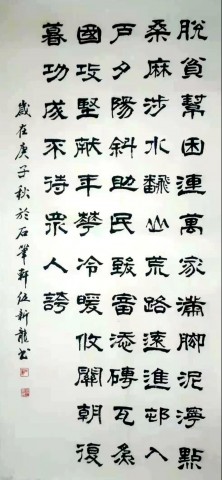 脫貧幫困連萬家滿腳泥濘點
桑麻涉水翻山荒路遠進邨入
戶夕陽斜助民致富添磚瓦為
國攻堅献年華冷暖攸關朝復
暮功成不待眾人誇
歲在庚子秋於石筆軒伍新龍書